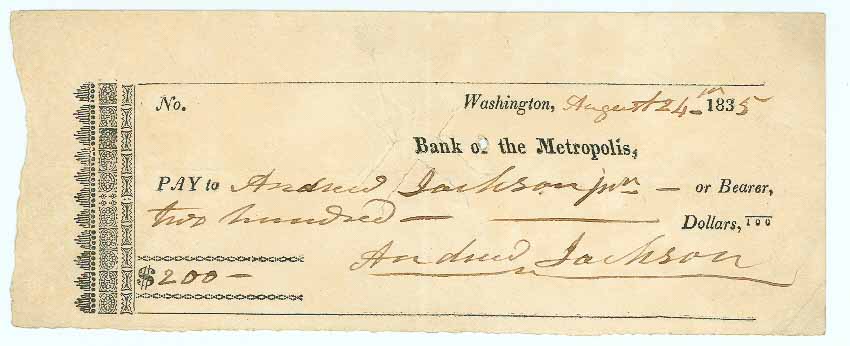 No. Washington, August 24th 1835
Bank of the Metropolis,
PAY to Andrew Jackson junr — or Bearer,
two hundred — — Dollars, 100
$200 —
Andrew Jackson